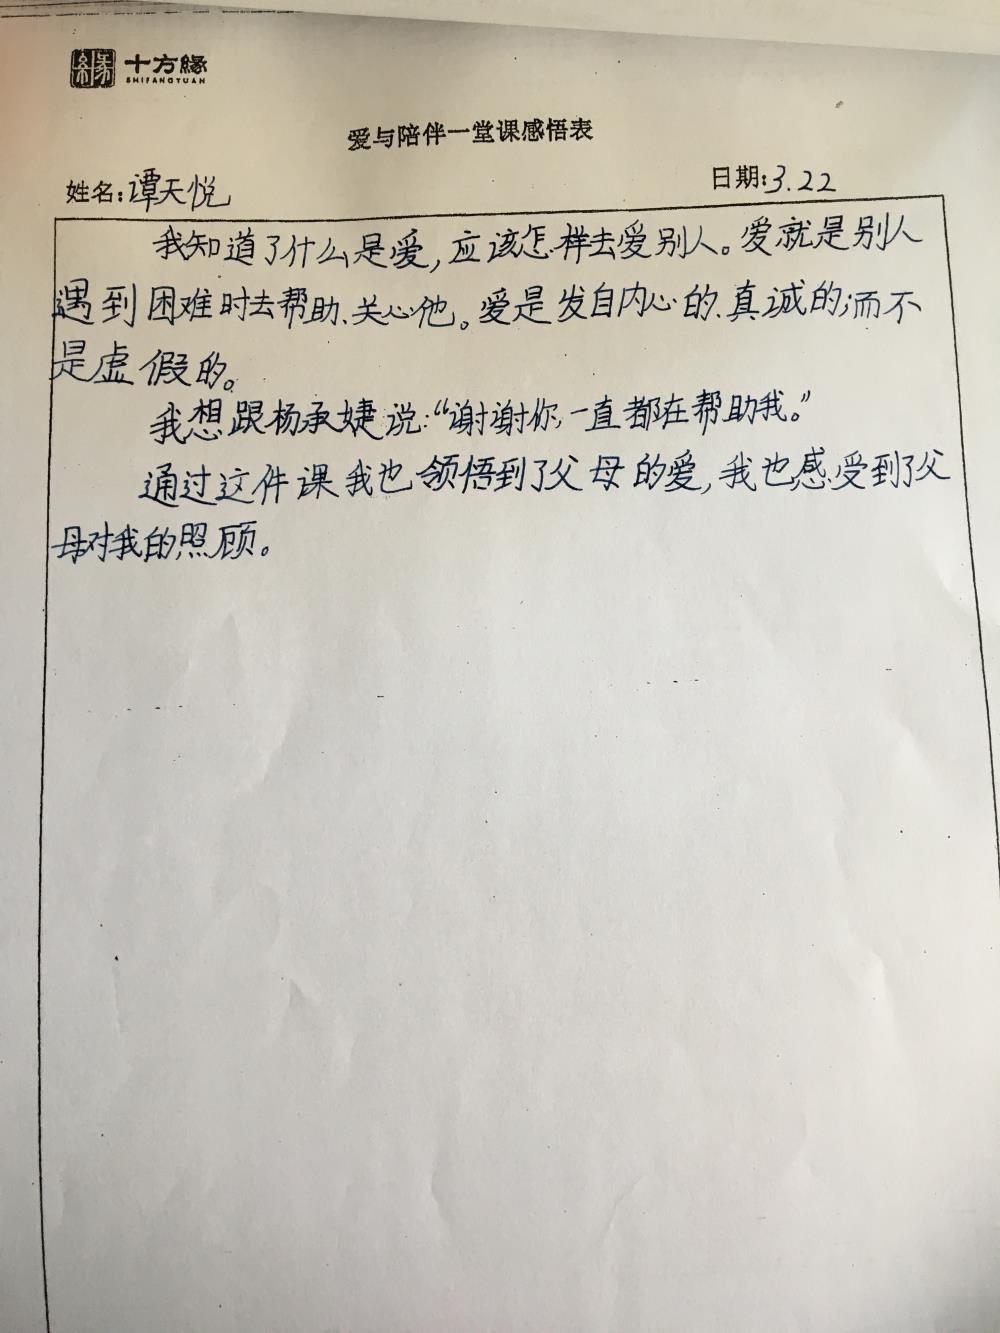 缘 十方緣
SHIFANGYUAN
爱与陪伴一堂课感悟表
姓名:谭天悦 日期:3.22
我知道了什么是爱,应该怎样去爱别人。爱就是别人
遇到困难时去帮助、关心他。爱是发自内心的、真诚的;而不
是虚假的。
我想跟杨承婕说:“谢谢你,一直都在帮助我。”
通过这件课我也领悟到了父母的爱,我也感受到了父
母对我的照顾。